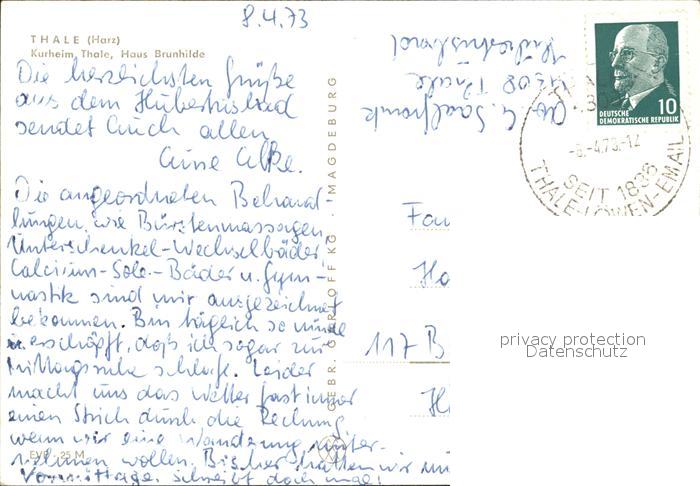 8.4.73
THALE (Harz)
Kurheim Thale, Haus Brunhilde
Die herzlichsten Grüße
aus dem Hubertusbad
sendet Euch allen
Eure Elke.
Die angeordneten Behand-
lungen, wie Bürstenmassagen
Unterschenkel-Wechselbäder
Calcium-Sole-Bäder u. Gym-
nastik sind mir ausgezeichnet
bekommen. Bin täglich so müde
u. erschöpft, daß ich sogar zur
Mittagsruhe schlafe. Leider
macht uns das Wetter fast immer
einen Strich durch die Rechnung,
wenn wir eine Wanderung unter-
nehmen wollen. Bisher hatten wir nur
Vormittags. schreibt doch mal!
EVP -25 M
GEBR. GARLOFF KG · MAGDEBURG
Hubertusbad
4308 Thale
Abs. G.
10
DEUTSCHE
DEMOKRATISCHE REPUBLIK
-8.-4.73-12
SEIT 1836
THALE-LÖWEN-EMAIL
Fam
Ha
117 B
privacy protection
Datenschutz